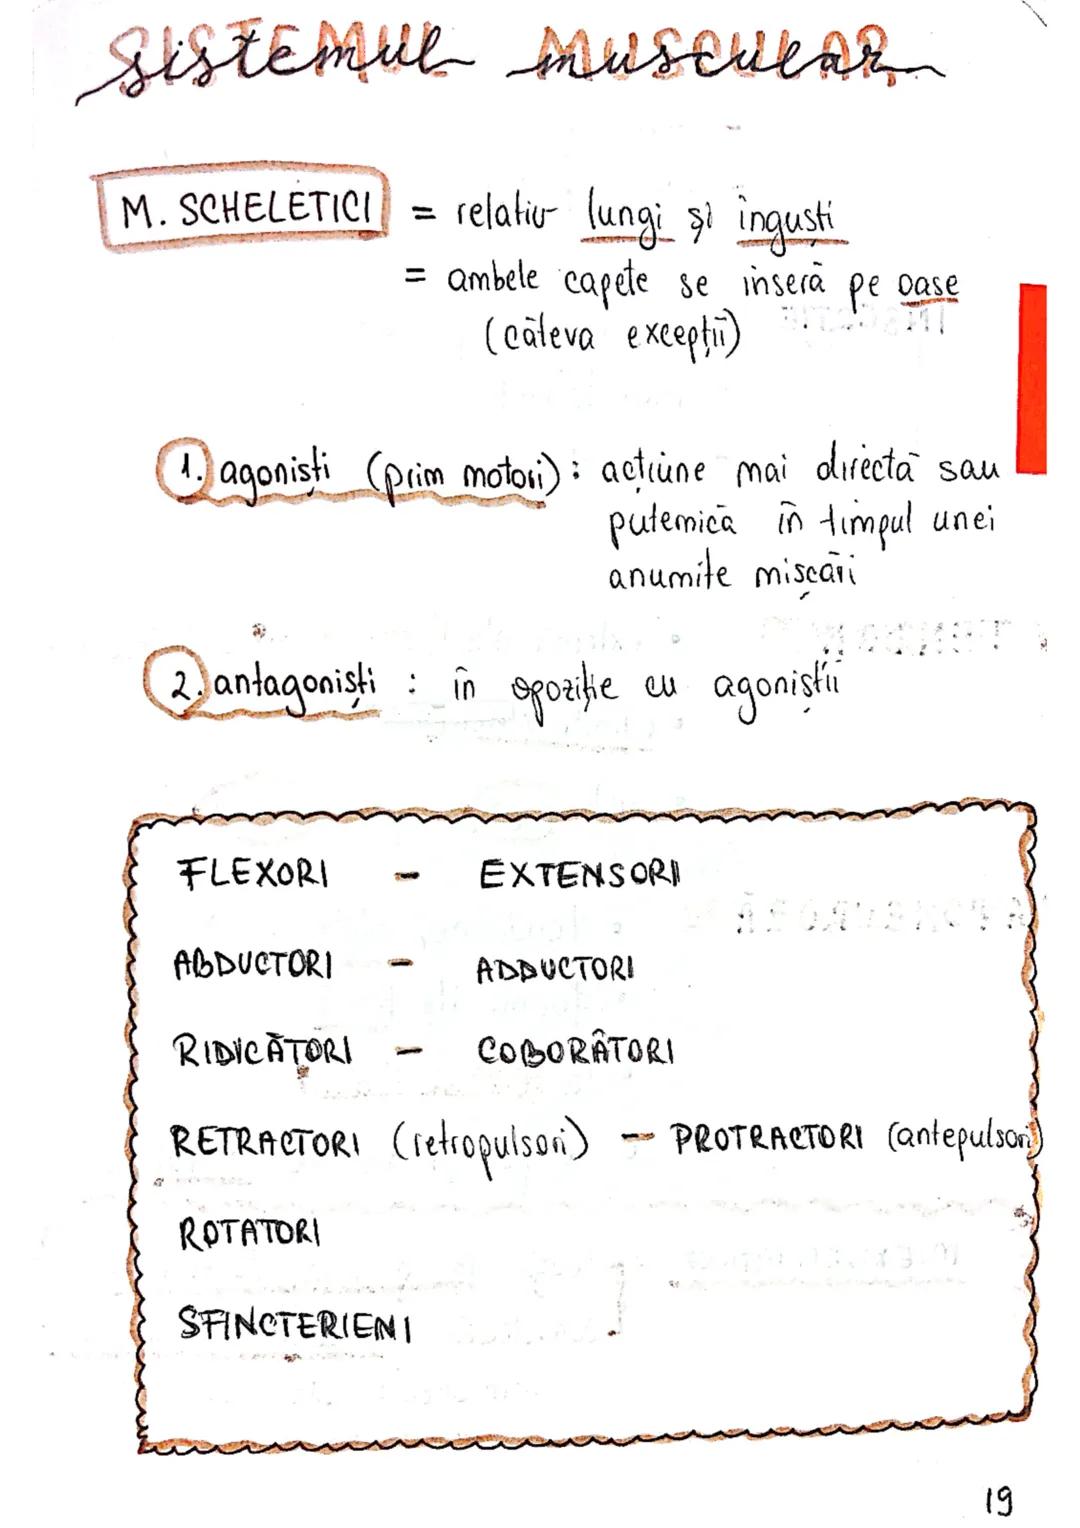 sistemul muscular
M. SCHELETICI = relativ lungi și înguști
= ambele capete se inseră pe oase
(câteva excepții)
1. agoniști (prim motori) : acțiune mai directă sau
puternică în timpul unei
anumite mișcări
2. antagoniști : în opoziție cu agoniștii
FLEXORI - EXTENSORI
ABDUCTORI - ADDUCTORI
RIDICĂTORI - COBORÂTORI
RETRACTORI (retropulsori) - PROTRACTORI (antepulsori)
ROTATORI
SFINCTERIENI
19